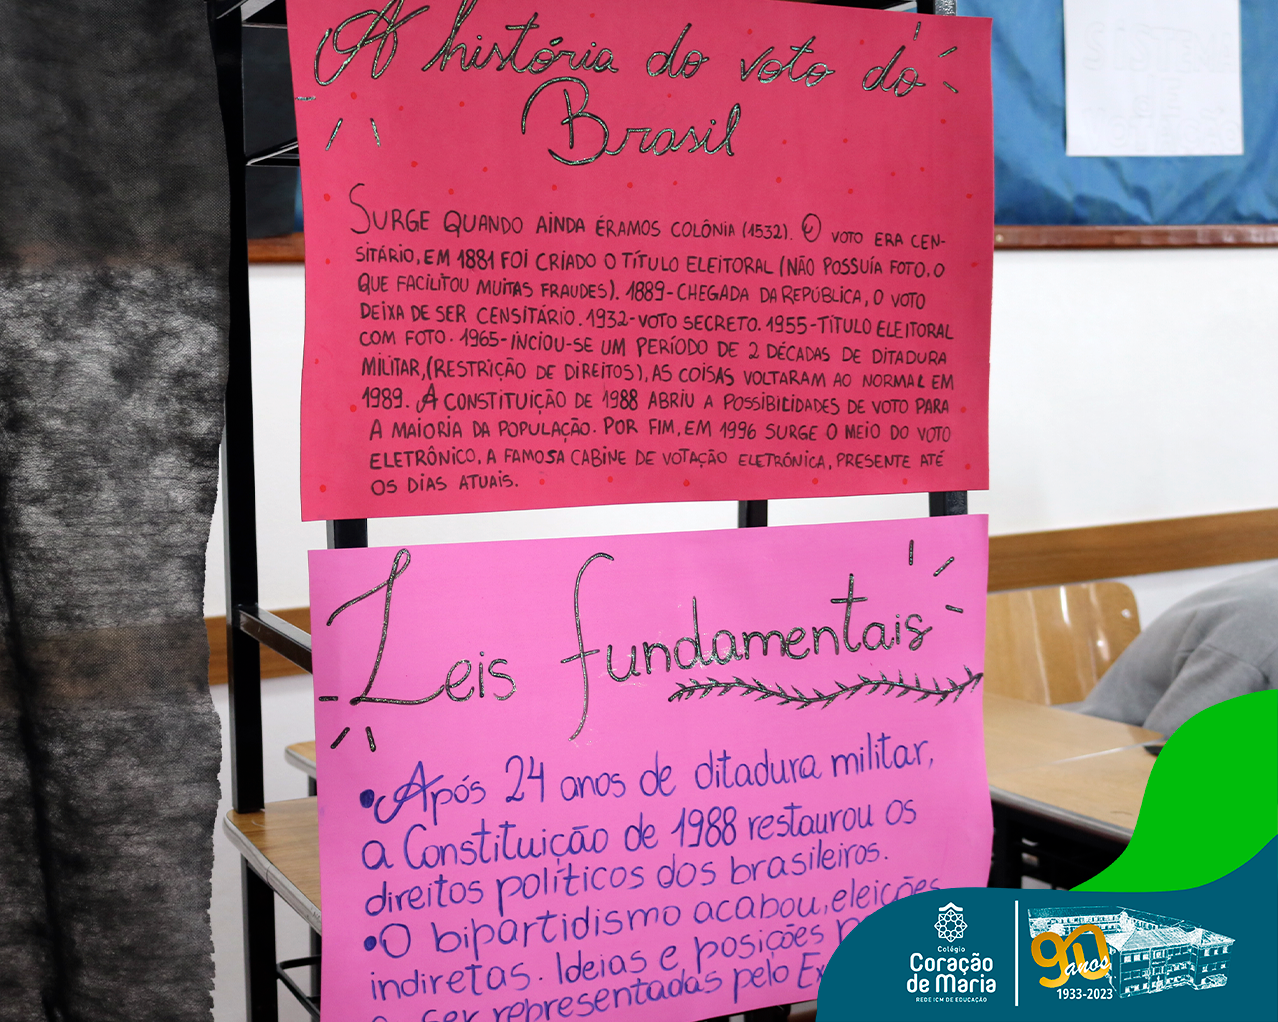 A história do voto do
Brasil
SURGE QUANDO AINDA ÉRAMOS COLÔNIA (1532). O VOTO ERA CEN-
SITÁRIO, EM 1881 FOI CRIADO O TÍTULO ELEITORAL (NÃO POSSUÍA FOTO, O
QUE FACILITOU MUITAS FRAUDES). 1889-CHEGADA DA REPÚBLICA, O VOTO
DEIXA DE SER CENSITÁRIO. 1932-VOTO SECRETO. 1955-TÍTULO ELEITORAL
COM FOTO. 1965-INCIOU-SE UM PERÍODO DE 2 DÉCADAS DE DITADURA
MILITAR, (RESTRIÇÃO DE DIREITOS), AS COISAS VOLTARAM AO NORMAL EM
1989. A CONSTITUIÇÃO DE 1988 ABRIU A POSSIBILIDADES DE VOTO PARA
A MAIORIA DA POPULAÇÃO. POR FIM, EM 1996 SURGE O MEIO DO VOTO
ELETRÔNICO, A FAMOSA CABINE DE VOTAÇÃO ELETRÔNICA, PRESENTE ATÉ
OS DIAS ATUAIS.
Leis fundamentais
•Após 24 anos de ditadura militar,
a Constituição de 1988 restaurou os
direitos políticos dos brasileiros.
•O bipartidismo acabou, eleições
indiretas. Ideias e posições
ser representadas pelo
Colégio
Coração
de Maria
REDE ICM DE EDUCAÇÃO
90 anos
1933-2023